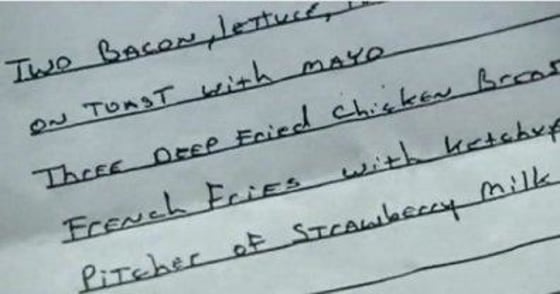 Two Bacon, lettuce,
ON TOAST with MAYO
Three DEEP Fried Chicken
French Fries with ketchup
Pitcher of Strawberry Milk